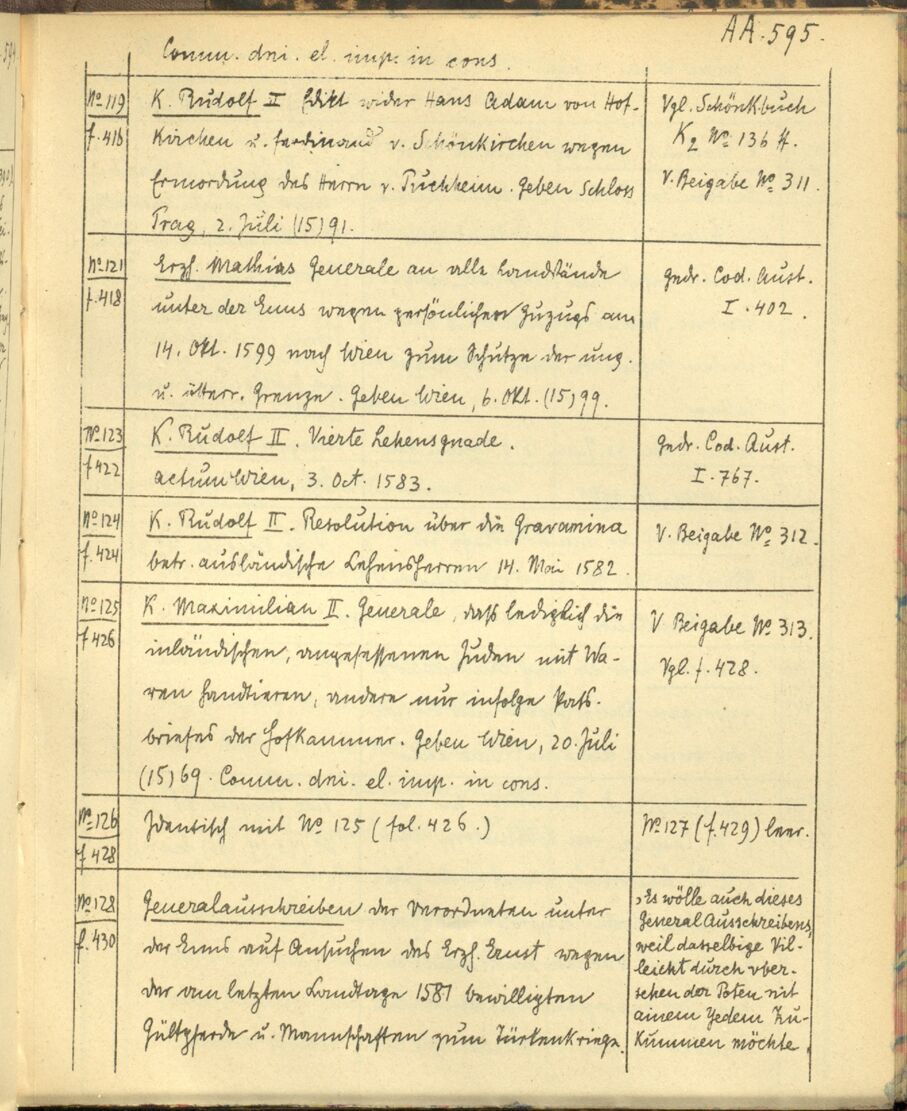 AA. 595.
Comm. dni. el. imp. in cons.
No 119
f. 416
K. Rudolf II Edikt wider Hans Adam von Hof-
kirchen u. Ferdinand v. Schönkirchen wegen
Ermordung des Herrn v. Puchheim. Geben Schloss
Prag, 2. Juli (15)91.
Vgl. Schönkbuch
K2 No 136 ff.
V. Beigabe No 311.
No 121
f. 418
Erzh. Mathias Generale an alle Landstände
unter der Enns wegen persönlichen Zuzugs am
14. Okt. 1599 nach Wien zum Schutze der ung.
u. österr. Grenze. Geben Wien, 6. Okt. (15)99.
Gedr. Cod. Aust.
I. 402.
No 123
f 422
K. Rudolf II. Vierte Lehensgnade.
actum Wien, 3. Oct. 1583.
Gedr. Cod. Aust.
I. 767.
No 124
f. 424
K. Rudolf II. Resolution über die Gravamina
betr. ausländische Lehensherren 14. Mai 1582.
V. Beigabe No 312.
No 125
f 426
K. Maximilian II. Generale, dass lediglich die
inländischen, angesessenen Juden mit Wa-
ren handtieren, andere nur infolge Pass-
briefes der Hofkammer. Geben Wien, 20. Juli
(15)69. Comm. dni. el. imp. in cons.
V Beigabe No 313.
Vgl. f. 428.
No 126
f 428
Identisch mit No 125 (fol. 426.)
No 127 (f. 429) leer.
No 128
f. 430
Generalausschreiben der Verordneten unter
der Enns auf Ansuchen des Erzh. Ernst wegen
der am letzten Landtage 1581 bewilligten
Gültpferde u. Mannschaften zum Türkenkriege.
„Es wölle auch dieses
General Ausschreibens,
weil dasselbige Vil-
leicht durch vber-
sehen der Poten nit
ainem Yedem Zu-
kummen möchte,